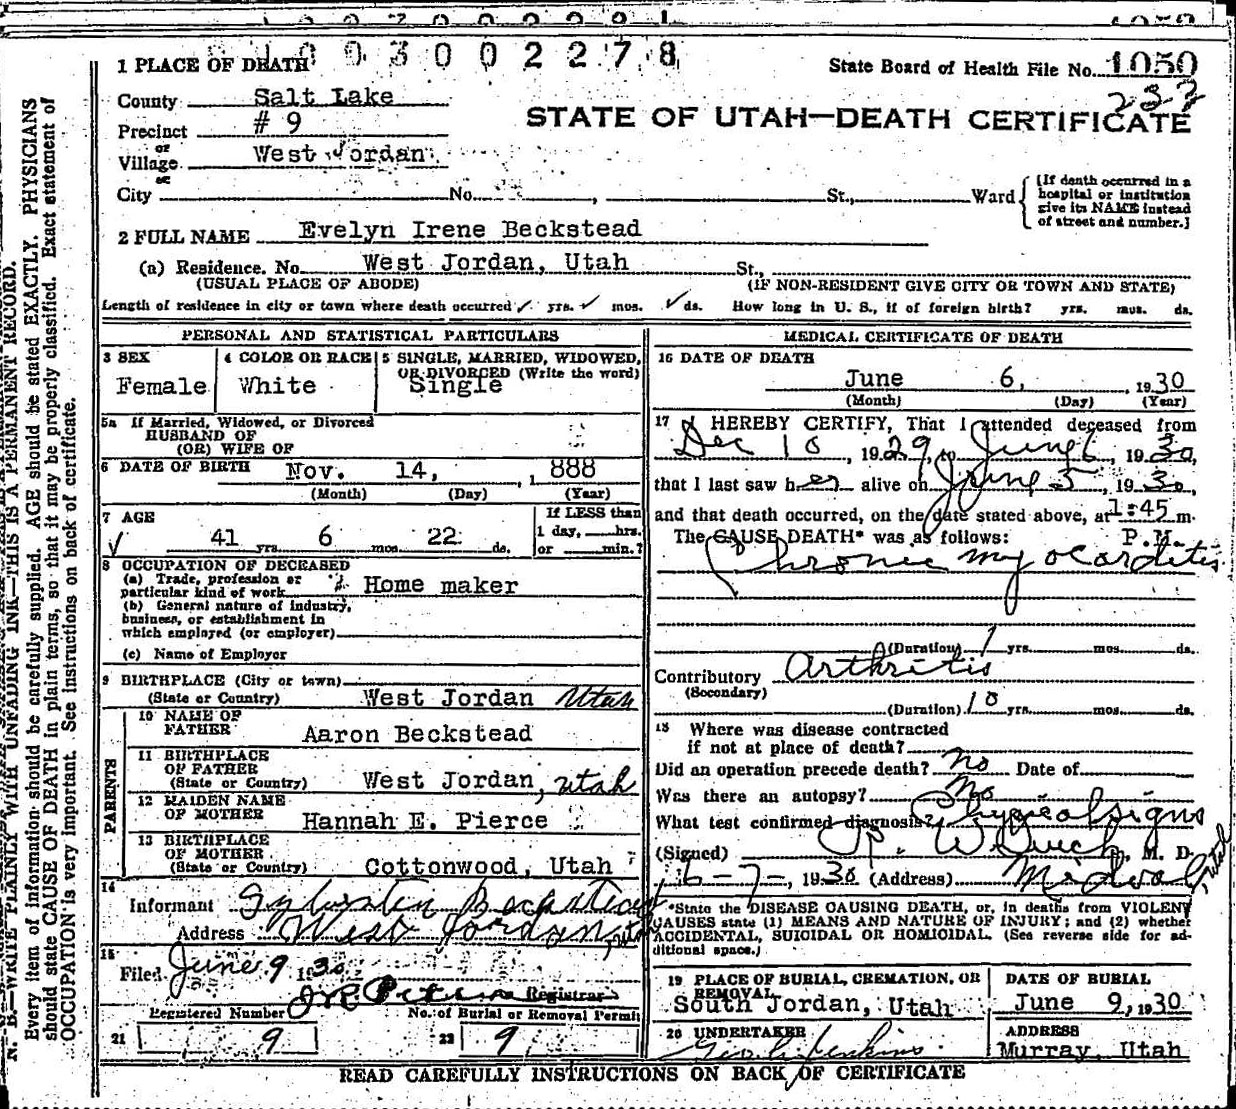 1003002278
1 PLACE OF DEATH
State Board of Health File No. 1050
County Salt Lake
232
STATE OF UTAH—DEATH CERTIFICATE
Precinct # 9
or
Village West Jordan
or
City No. , St., Ward
[If death occurred in a
hospital or institution
give its NAME instead
of street and number.]
2 FULL NAME Evelyn Irene Beckstead
(a) Residence. No. West Jordan, Utah St.,
(USUAL PLACE OF ABODE) (IF NON-RESIDENT GIVE CITY OR TOWN AND STATE)
Length of residence in city or town where death occurred ✓ yrs. ✓ mos. ✓ ds. How long in U. S., if of foreign birth? yrs. mos. ds.
PERSONAL AND STATISTICAL PARTICULARS
3 SEX
Female
4 COLOR OR RACE
White
5 SINGLE, MARRIED, WIDOWED,
OR DIVORCED (Write the word)
Single
5a If Married, Widowed, or Divorced
HUSBAND OF
(OR) WIFE OF
6 DATE OF BIRTH Nov. 14, , 1 888
(Month) (Day) (Year)
7 AGE
✓ 41 yrs. 6 mos. 22 ds.
If LESS than
1 day, hrs.
or min.?
8 OCCUPATION OF DECEASED
(a) Trade, profession or
particular kind of work Home maker
(b) General nature of industry,
business, or establishment in
which employed (or employer)
(c) Name of Employer
9 BIRTHPLACE (City or town)
(State or Country) West Jordan Utah
PARENTS
10 NAME OF
FATHER Aaron Beckstead
11 BIRTHPLACE
OF FATHER
(State or Country) West Jordan, Utah
12 MAIDEN NAME
OF MOTHER Hannah E. Pierce
13 BIRTHPLACE
OF MOTHER
(State or Country) Cottonwood, Utah
14
Informant Sylvester Beckstead
Address West Jordan, Utah
15
Filed June 9 1930
J R Peterson Registrar
Registered Number No. of Burial or Removal Permit
21 9 22 9
MEDICAL CERTIFICATE OF DEATH
16 DATE OF DEATH
June 6, 1930
(Month) (Day) (Year)
17 I HEREBY CERTIFY, That I attended deceased from
Dec 10, 1929, to June 6, 1930,
that I last saw her alive on June 5, 1930,
and that death occurred, on the date stated above, at 1:45 m.
The CAUSE DEATH* was as follows: P.M.
Chronic myocarditis
(Duration) 1 yrs. mos. ds.
Contributory Arthritis
(Secondary)
(Duration) 10 yrs. mos. ds.
18 Where was disease contracted
if not at place of death?
Did an operation precede death? no Date of
Was there an autopsy? No
What test confirmed diagnosis? Physical signs
(Signed) , M. D.
6-7-, 1930 (Address) Midvale, Utah
*State the DISEASE CAUSING DEATH, or, in deaths from VIOLENT
CAUSES state (1) MEANS AND NATURE OF INJURY; and (2) whether
ACCIDENTAL, SUICIDAL OR HOMICIDAL. (See reverse side for ad-
ditional space.)
19 PLACE OF BURIAL, CREMATION, OR
REMOVAL
South Jordan, Utah
DATE OF BURIAL
June 9, 1930
20 UNDERTAKER
Geo. Jenkins
ADDRESS
Murray, Utah
READ CAREFULLY INSTRUCTIONS ON BACK OF CERTIFICATE
N. B.—WRITE PLAINLY WITH UNFADING INK—THIS IS A PERMANENT RECORD.
Every item of information should be carefully supplied. AGE should be stated EXACTLY. PHYSICIANS
should state CAUSE OF DEATH in plain terms, so that it may be properly classified. Exact statement of
OCCUPATION is very important. See instructions on back of certificate.